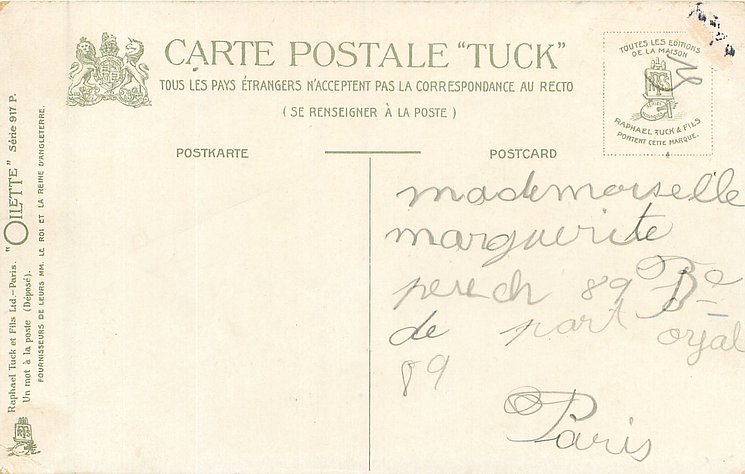 CARTE POSTALE "TUCK"
TOUS LES PAYS ÉTRANGERS N'ACCEPTENT PAS LA CORRESPONDANCE AU RECTO
( SE RENSEIGNER À LA POSTE )
POSTKARTE
POSTCARD
TOUTES LES EDITIONS
DE LA MAISON
RAPHAEL TUCK & FILS
PORTENT CETTE MARQUE.
Raphael Tuck et Fils Ltd.—Paris. "OILETTE" Série 917 P.
Un mot à la poste (Déposé).
FOURNISSEURS DE LEURS MM. LE ROI ET LA REINE D'ANGLETERRE.
mademoiselle
marguerite
89 Bd
de port oyal
89
Paris